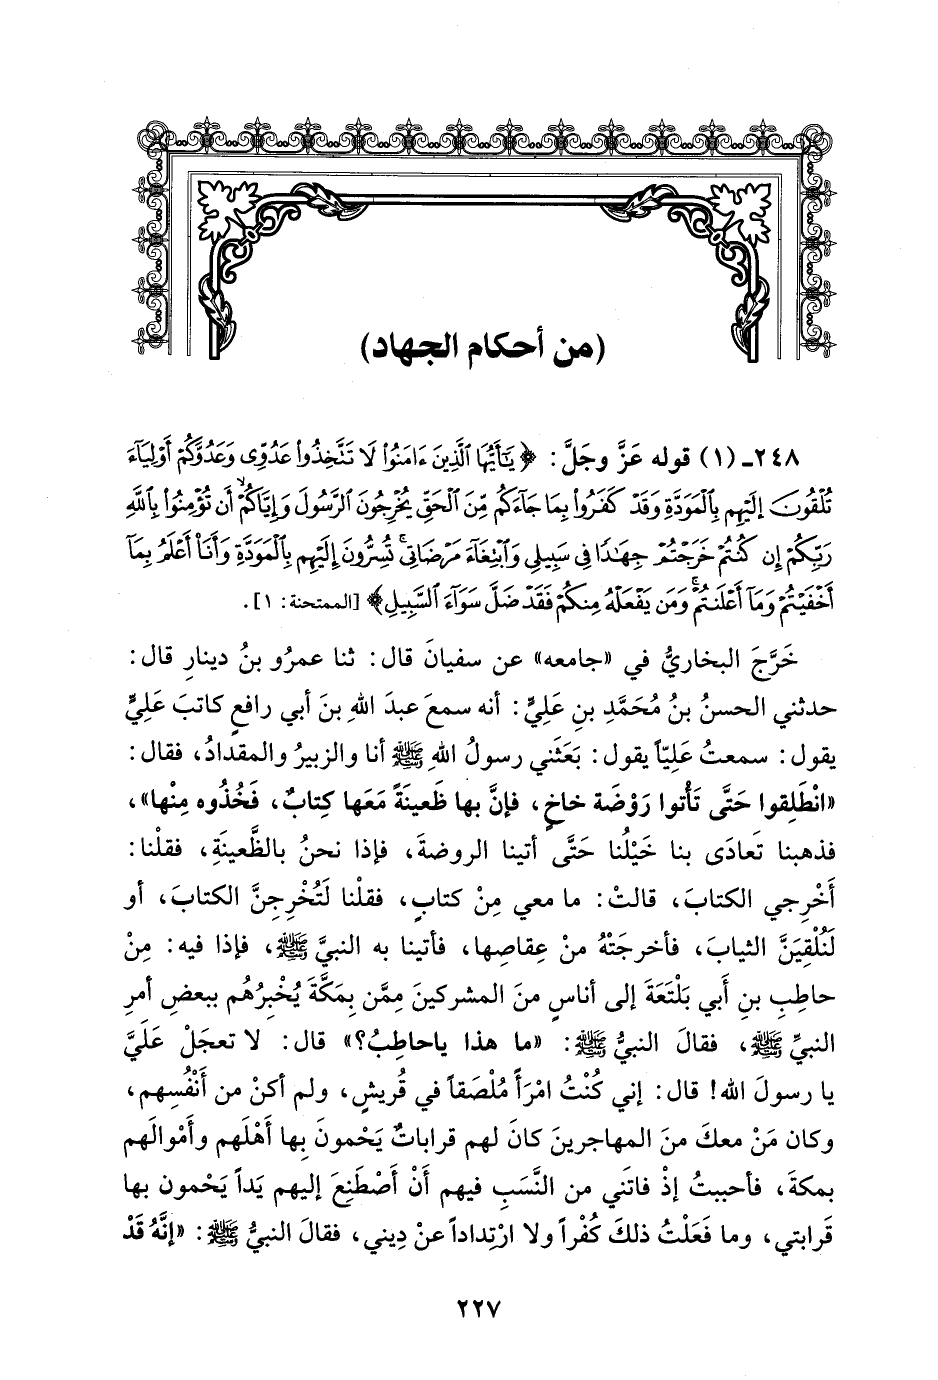 (من أحكام الجهاد)
٢٤٨ـ (١) قوله عَزَّ وجَلَّ: ﴿يَٰٓأَيُّهَا ٱلَّذِينَ ءَامَنُوا۟ لَا تَتَّخِذُوا۟ عَدُوِّى وَعَدُوَّكُمْ أَوْلِيَآءَ
تُلْقُونَ إِلَيْهِم بِٱلْمَوَدَّةِ وَقَدْ كَفَرُوا۟ بِمَا جَآءَكُم مِّنَ ٱلْحَقِّ يُخْرِجُونَ ٱلرَّسُولَ وَإِيَّاكُمْ ۙ أَن تُؤْمِنُوا۟ بِٱللَّهِ
رَبِّكُمْ إِن كُنتُمْ خَرَجْتُمْ جِهَٰدًا فِى سَبِيلِى وَٱبْتِغَآءَ مَرْضَاتِى ۚ تُسِرُّونَ إِلَيْهِم بِٱلْمَوَدَّةِ وَأَنَا۠ أَعْلَمُ بِمَآ
أَخْفَيْتُمْ وَمَآ أَعْلَنتُمْ ۚ وَمَن يَفْعَلْهُ مِنكُمْ فَقَدْ ضَلَّ سَوَآءَ ٱلسَّبِيلِ﴾ [الممتحنة: ١].
خَرَّجَ البخاريُّ في «جامعه» عن سفيانَ قال: ثنا عمرُو بنُ دينارِ قال:
حدثني الحسنُ بنُ مُحَمَّدِ بنِ عَلِيٍّ: أنه سمعَ عبدَ اللهِ بنَ أبي رافعٍ كاتبَ عَلِيٍّ
يقول: سمعتُ عَلِيّاً يقول: بَعَثَني رسولُ اللهِ ﷺ أنا والزبيرُ والمقدادُ، فقال:
«انْطَلِقوا حَتَّى تَأْتوا رَوْضَةَ خاخٍ، فإنَّ بها ظَعينَةً مَعَها كِتابٌ، فَخُذُوه مِنْها»،
فذهبنا تَعادَى بنا خَيْلُنا حَتَّى أتينا الروضةَ، فإذا نحنُ بالظَّعينَةِ، فقلْنا:
أَخْرِجي الكتابَ، قالتْ: ما معي مِنْ كتابٍ، فقلْنا لَتُخْرِجِنَّ الكتابَ، أو
لَنُلْقِيَنَّ الثيابَ، فأخرجَتْهُ منْ عِقاصِها، فأتينا به النبيَّ ﷺ، فإذا فيه: مِنْ
حاطِبِ بنِ أَبي بَلْتَعَةَ إلى أناسٍ منَ المشركينَ مِمَّن بِمَكَّةَ يُخْبِرُهُم ببعضِ أمرِ
النبيِّ ﷺ، فقالَ النبيُّ ﷺ: «ما هذا ياحاطِبُ؟» قال: لا تعجَلْ عَلَيَّ
يا رسولَ الله! قال: إني كُنْتُ امْرَأً مُلْصَقاً في قُريشٍ، ولم أكنْ من أَنْفُسِهم،
وكان مَنْ معكَ منَ المهاجرينَ كانَ لهم قراباتٌ يَحْمونَ بِها أَهْلَهم وأَمْوالَهم
بمكةَ، فأحببتُ إذْ فاتَني من النَّسَبِ فيهم أَنْ أَصْطَنِعَ إليهم يَداً يَحْمون بها
قَرابتي، وما فَعَلْتُ ذلكَ كُفْراً ولا ارْتِداداً عنْ دِيني، فقالَ النبيُّ ﷺ: «إنَّهُ قَدْ
٢٢٧